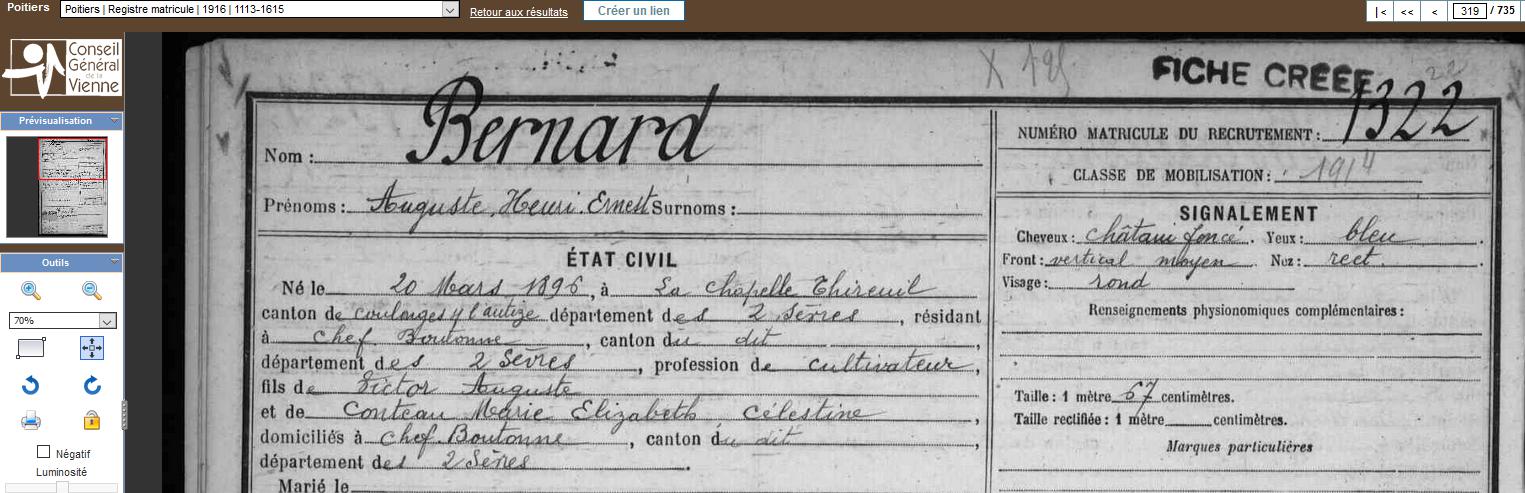 Poitiers
Poitiers | Registre matricule | 1916 | 1113-1615
Retour aux résultats
Créer un lien
|<
<<
<
319
/ 735
Conseil
Général
de la
Vienne
Prévisualisation
Outils
70%
Négatif
Luminosité
FICHE CRÉÉE
Nom : Bernard
Prénoms : Auguste, Henri, Ernest Surnoms :
ÉTAT CIVIL
Né le 20 Mars 1896, à La Chapelle Thireuil
canton de coulonges s/ l'autize département des 2 Sèvres, résidant
à Chef Boutonne, canton du dit,
département des 2 Sèvres, profession de cultivateur,
fils de Victor Auguste
et de Conteau Marie Elizabeth Célestine,
domiciliés à Chef Boutonne, canton du dit,
département des 2 Sèvres.
Marié le
NUMÉRO MATRICULE DU RECRUTEMENT : 1322
CLASSE DE MOBILISATION : 1914
SIGNALEMENT
Cheveux : châtain foncé. Yeux : bleu.
Front : vertical moyen Nez : rect.
Visage : rond
Renseignements physionomiques complémentaires :
Taille : 1 mètre 67 centimètres.
Taille rectifiée : 1 mètre centimètres.
Marques particulières